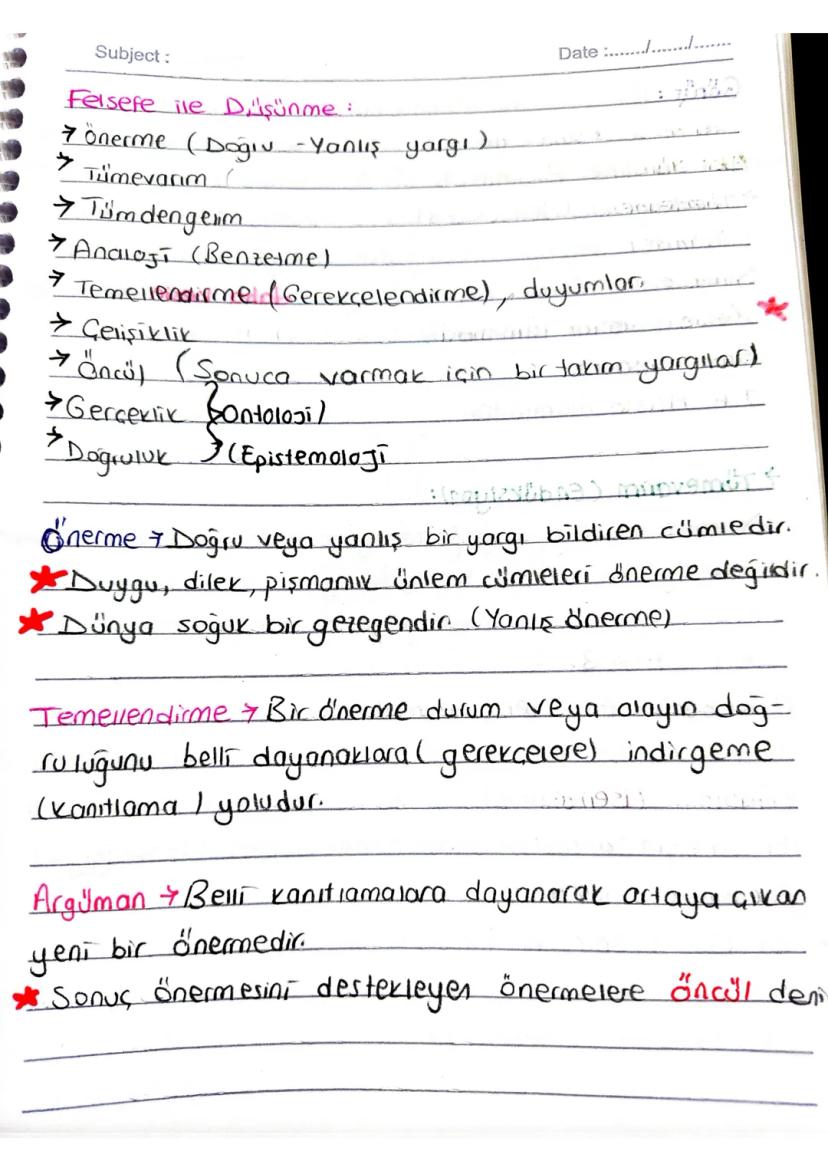 Subject :
Date :......./......./.......
Felsefe ile Düşünme :
→ Önerme (Doğru - Yanlış yargı)
→ Tümevarım (
→ Tümdengelim
→ Analoji (Benzetme)
→ Temellendirme (Gerekçelendirme), duyumlar.
→ Çelişiklik
→ Öncül (Sonuca varmak için bir takım yargılar.)
→ Gerçeklik (Ontoloji)
→ Doğruluk (Epistemoloji
Önerme → Doğru veya yanlış bir yargı bildiren cümledir.
★ Duygu, dilek, pişmanlık ünlem cümleleri önerme değildir.
★ Dünya soğuk bir gezegendir. (Yanlış önerme)
Temellendirme → Bir önerme durum veya olayın doğ-
ruluğunu belli dayanaklara (gerekçelere) indirgeme
(kanıtlama) yoludur.
Argüman → Belli kanıtlamalara dayanarak ortaya çıkan
yeni bir önermedir.
★ Sonuç önermesini destekleyen önermelere öncül deni